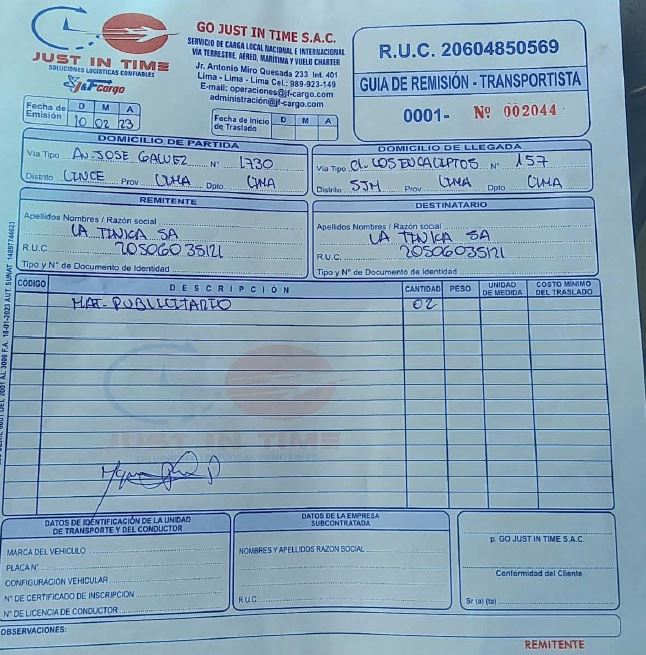 JUST IN TIME
SOLUCIONES LOGÍSTICAS CONFIABLES
J&F cargo
GO JUST IN TIME S.A.C.
SERVICIO DE CARGA LOCAL NACIONAL E INTERNACIONAL
VÍA TERRESTRE, AEREO, MARÍTIMA Y VUELO CHARTER
Jr. Antonio Miro Quesada 233 Int. 401
Lima - Lima - Lima Cel.: 989-923-149
E-mail: operaciones@jf-cargo.com
administración@jf-cargo.com
R.U.C. 20604850569
GUIA DE REMISIÓN - TRANSPORTISTA
0001- Nº 002044
Fecha de Emisión D M A
10 02 23
Fecha de Inicio de Traslado D M A
DOMICILIO DE PARTIDA
Vía Tipo AV. JOSE GALVEZ Nº 1730
Distrito LINCE Prov LIMA Dpto. LIMA
DOMICILIO DE LLEGADA
Vía Tipo CL. LOS EUCALIPTOS Nº 157
Distrito SJM Prov LIMA Dpto. LIMA
REMITENTE
Apellidos Nombres / Razón social
LA TINKA SA
R.U.C. 20506035121
Tipo y Nº de Documento de Identidad
DESTINATARIO
Apellidos Nombres / Razón social
LA TINKA SA
R.U.C. 20506035121
Tipo y Nº de Documento de Identidad
CÓDIGO DESCRIPCIÓN CANTIDAD PESO UNIDAD DE MEDIDA COSTO MÍNIMO DEL TRASLADO
MAT-PUBLICITARIO 02
JUST IN TIME
DATOS DE IDENTIFICACIÓN DE LA UNIDAD
DE TRANSPORTE Y DEL CONDUCTOR
MARCA DEL VEHICULO
PLACA Nº
CONFIGURACIÓN VEHICULAR
Nº DE CERTIFICADO DE INSCRIPCION
Nº DE LICENCIA DE CONDUCTOR
DATOS DE LA EMPRESA
SUBCONTRATADA
NOMBRES Y APELLIDOS RAZON SOCIAL
R.U.C.
p. GO JUST IN TIME S.A.C.
Conformidad del Cliente
Sr (a) (ta)
OBSERVACIONES:
REMITENTE